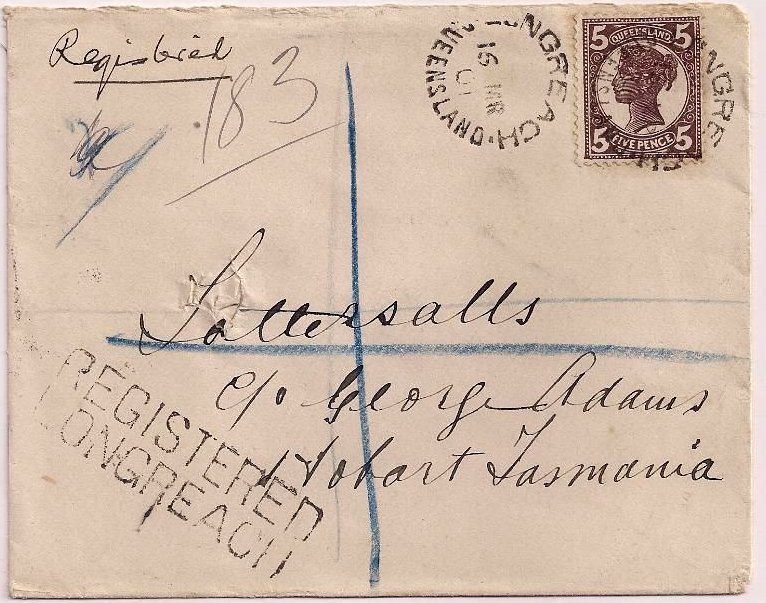 Registried
183
LONGREACH
16 MR
01
QUEENSLAND
5 QUEENSLAND 5
5 FIVE PENCE 5
NGRE
Tattersalls
c/o George Adams
Hobart Tasmania
REGISTERED
LONGREACH